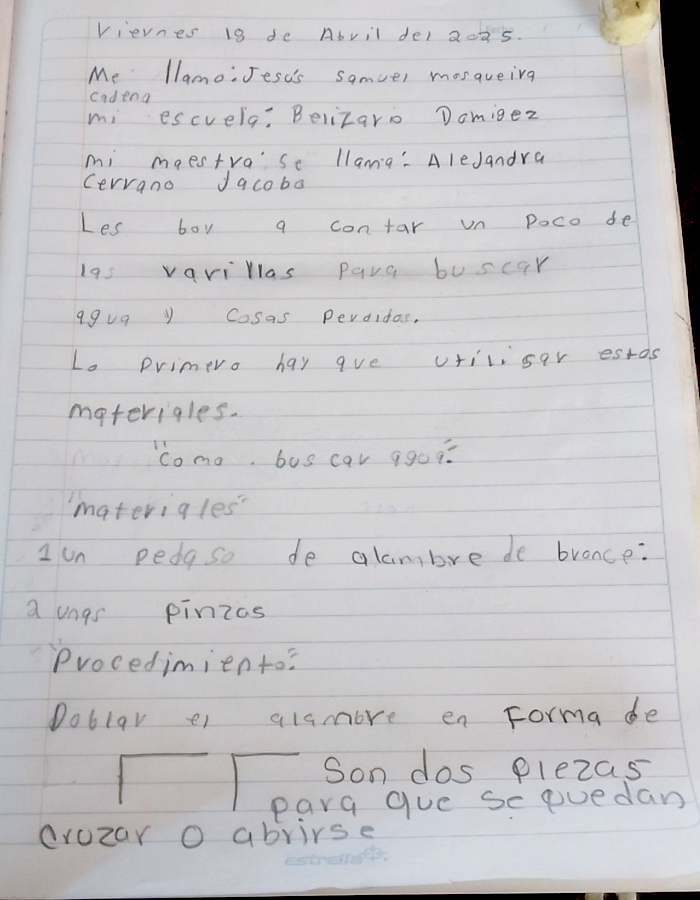 Viernes 18 de Abril del 2025.
Me llamo: Jesús samuel mosqueira
cadena
mi escuela: Belizario Domigez
mi maestra se llama: Alejandra
Cerrano Jacobo
Les boy a contar un Poco de
las varillas para buscar
agua y cosas perdidas.
Lo primero hay que utilisar estos
materiales.
"Como buscar agua"
"materiales"
1 un pedaso de alambre de bronce:
2 unas pinzas
Procedimiento:
Doblar el alambre en Forma de
Son dos piezas
para que se puedan
cruzar o abrirse
estrella